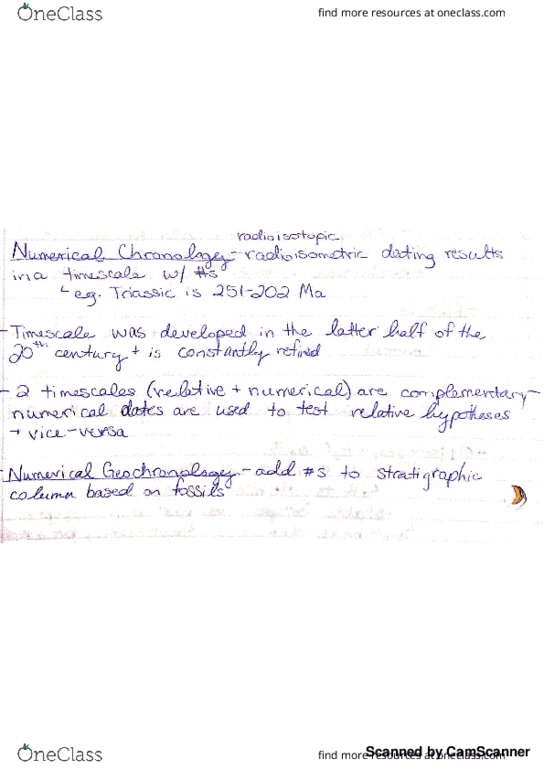 OneClass
find more resources at oneclass.com
radioisotopic
Numerical Chronology - radioisometric dating results
in a timescale w/ #s
↳ eg. Triassic is 251-202 Ma
- Timescale was developed in the latter half of the
20th century + is constantly refined
- 2 timescales (relative + numerical) are complementary -
numerical dates are used to test relative hypotheses
+ vice-versa
- Numerical Geochronology - add #s to stratigraphic
column based on fossils
OneClass
find more resources at oneclass.com
Scanned by CamScanner